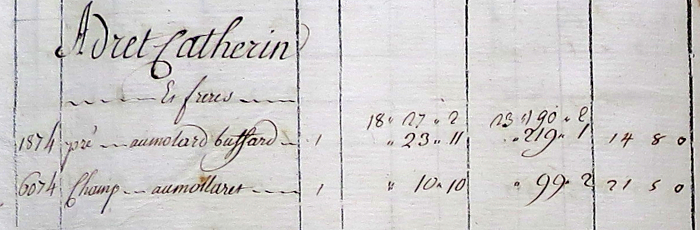 Adret Catherin
Et freres
18 " 27 " 2 23 " 190 " 2
1874 pré aumolard buffard 1 " 23 " 11 " 219 " 1 14 8 0
6074 Champ aumollaret 1 " 10 " 10 " 99 " 2 21 5 0